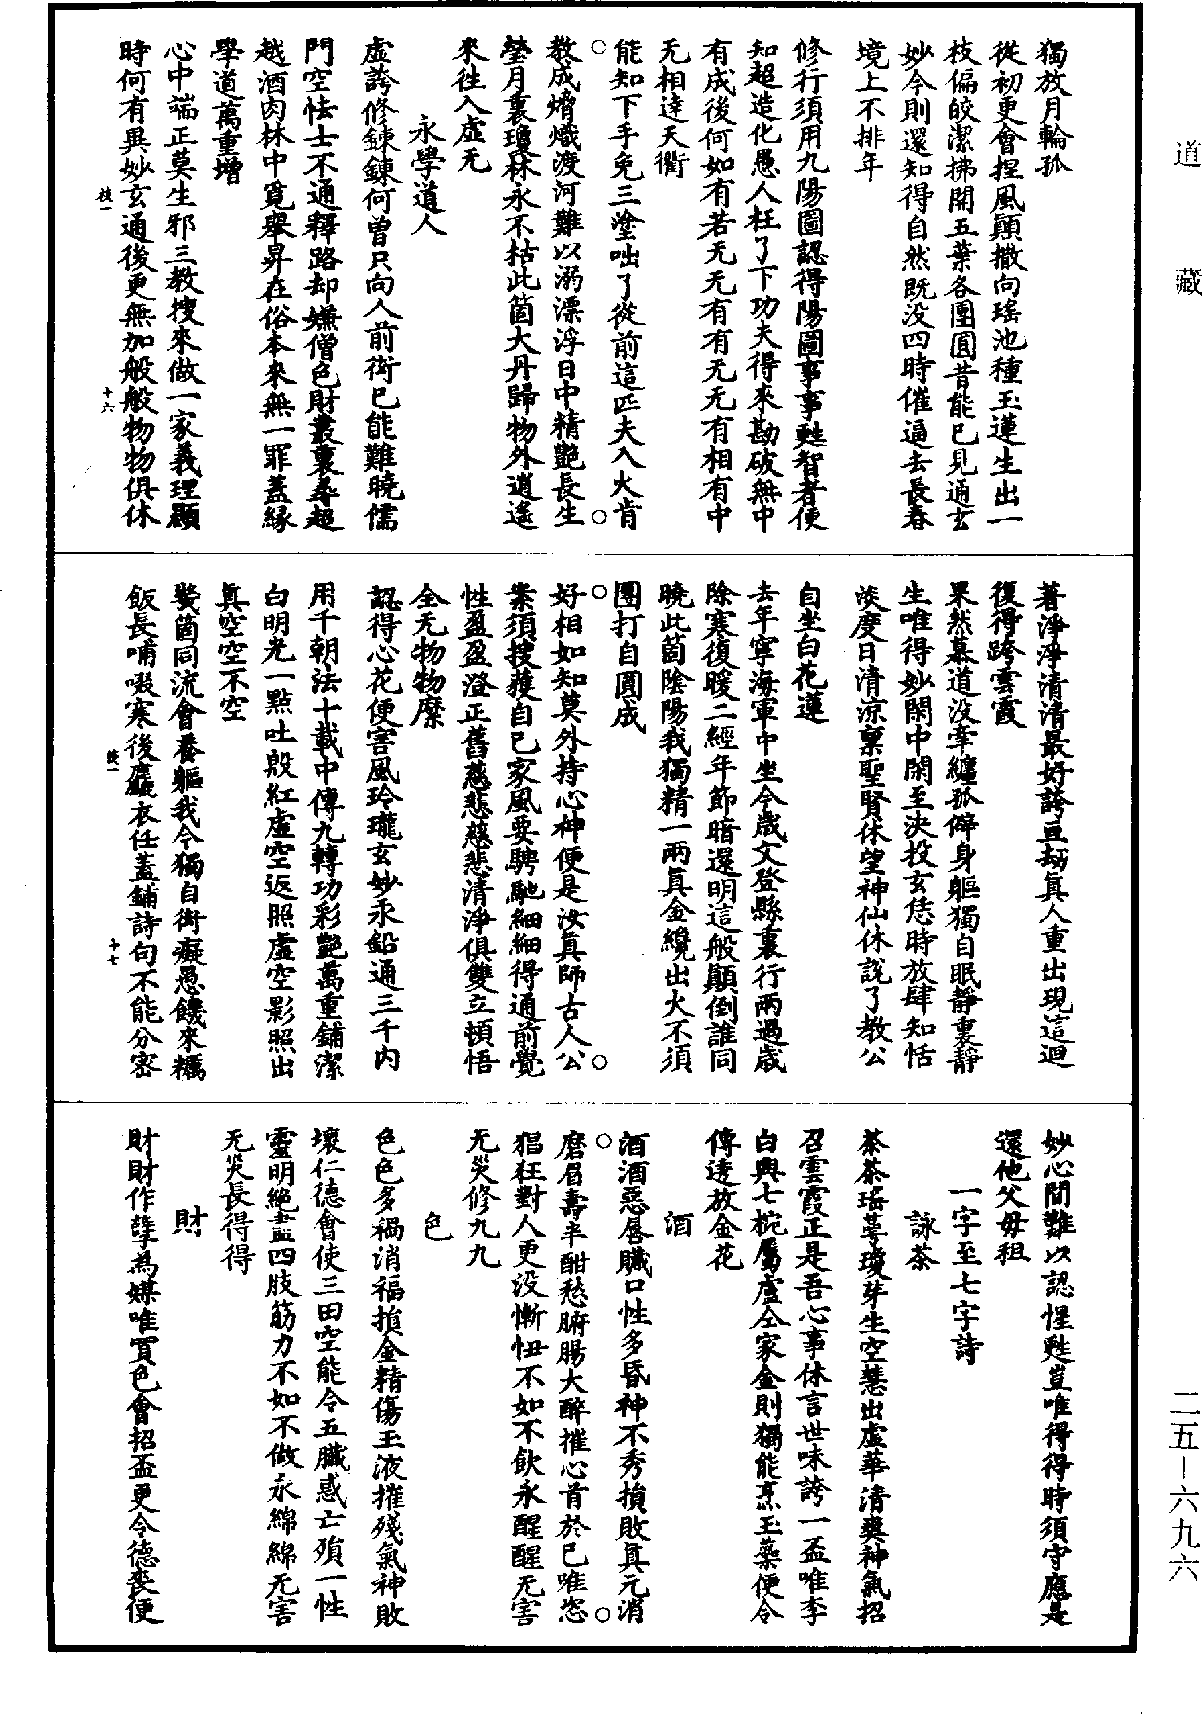 道藏
獨放月輪孤
從初更會捏風顛撒向瑤池種玉蓮生出一
枝偏皎潔拂開五葉各團圓昔能已見通玄
妙今則還知得自然既没四時催逼去長春
境上不排年
修行須用九陽圖認得陽圖事事甦智者便
知超造化愚人枉了下功夫得來勘破無中
有成後何如有若无无有有无无有相有中
无相達天衢
能知下手免三塗咄了從前這匹夫入火肯
教成熖熾渡河難以溺漂浮日中精艷長生
瑩月裏瓊林永不枯此箇大丹歸物外逍遙
來往入虛无
永學道人
虛誇修鍊鍊何曾只向人前衒已能難曉儒
門空怯士不通釋路却嫌僧色財叢裏尋超
越酒肉林中覓舉昇在俗本來無一罪蓋緣
學道萬重增
心中端正莫生邪三教搜來做一家義理顯
時何有異妙玄通後更無加般般物物俱休
著淨淨清清最好誇亘劫真人重出現這迴
復得跨雲霞
果然慕道没牽纏孤僻身軀獨自眠靜裏靜
生唯得妙閑中閑至決投玄恁時放肆知恬
淡度日清涼稟聖賢休望神仙休説了教公
自坐白花蓮
去年寧海軍中坐今歲文登縣裏行兩過歲
除寒復暖二經年節暗還明這般顛倒誰同
曉此箇陰陽我獨精一兩真金纔出火不須
團打自圓成
好相如知莫外持心神便是汝真師古人公
案須搜獲自已家風要騁馳細細得通前覺
性盈盈澄正舊慈悲慈悲清淨俱雙立頓悟
全无物物縻
認得心花便害風玲瓏玄妙永鉛通三千内
用千朝法十載中傳九轉功彩艷萬重鋪潔
白明光一點吐殷紅虛空返照虛空影照出
真空空不空
幾箇同流會養軀我今獨自衒癡愚饑來糲
飯長哺啜寒後麤衣任蓋鋪詩句不能分密
妙心間難以認惺甦豈唯得得時須守應是
還他父母租
一字至七字詩
詠茶
茶茶瑶萼瓊芽生空慧出虛華清爽神氣招
召雲霞正是吾心事休言世味誇一盃唯李
白興七椀屬盧仝家金則獨能烹玉蘂便令
傳透放金花
酒
酒酒惡唇贓口性多昏神不秀損敗真元消
磨眉壽半酣愁腑腸大醉摧心首於已唯恣
猖狂對人更没慚忸不如不飲永醒醒无害
无災修九九
色
色色多禍消福損金精傷玉液摧殘氣神敗
壞仁德會使三田空能令五臟惑亡殞一性
靈明絶盡四肢筋力不如不做永綿綿无害
无災長得得
財
財財作孽為媒唯買色會招盃更令德喪便
二五—六九六